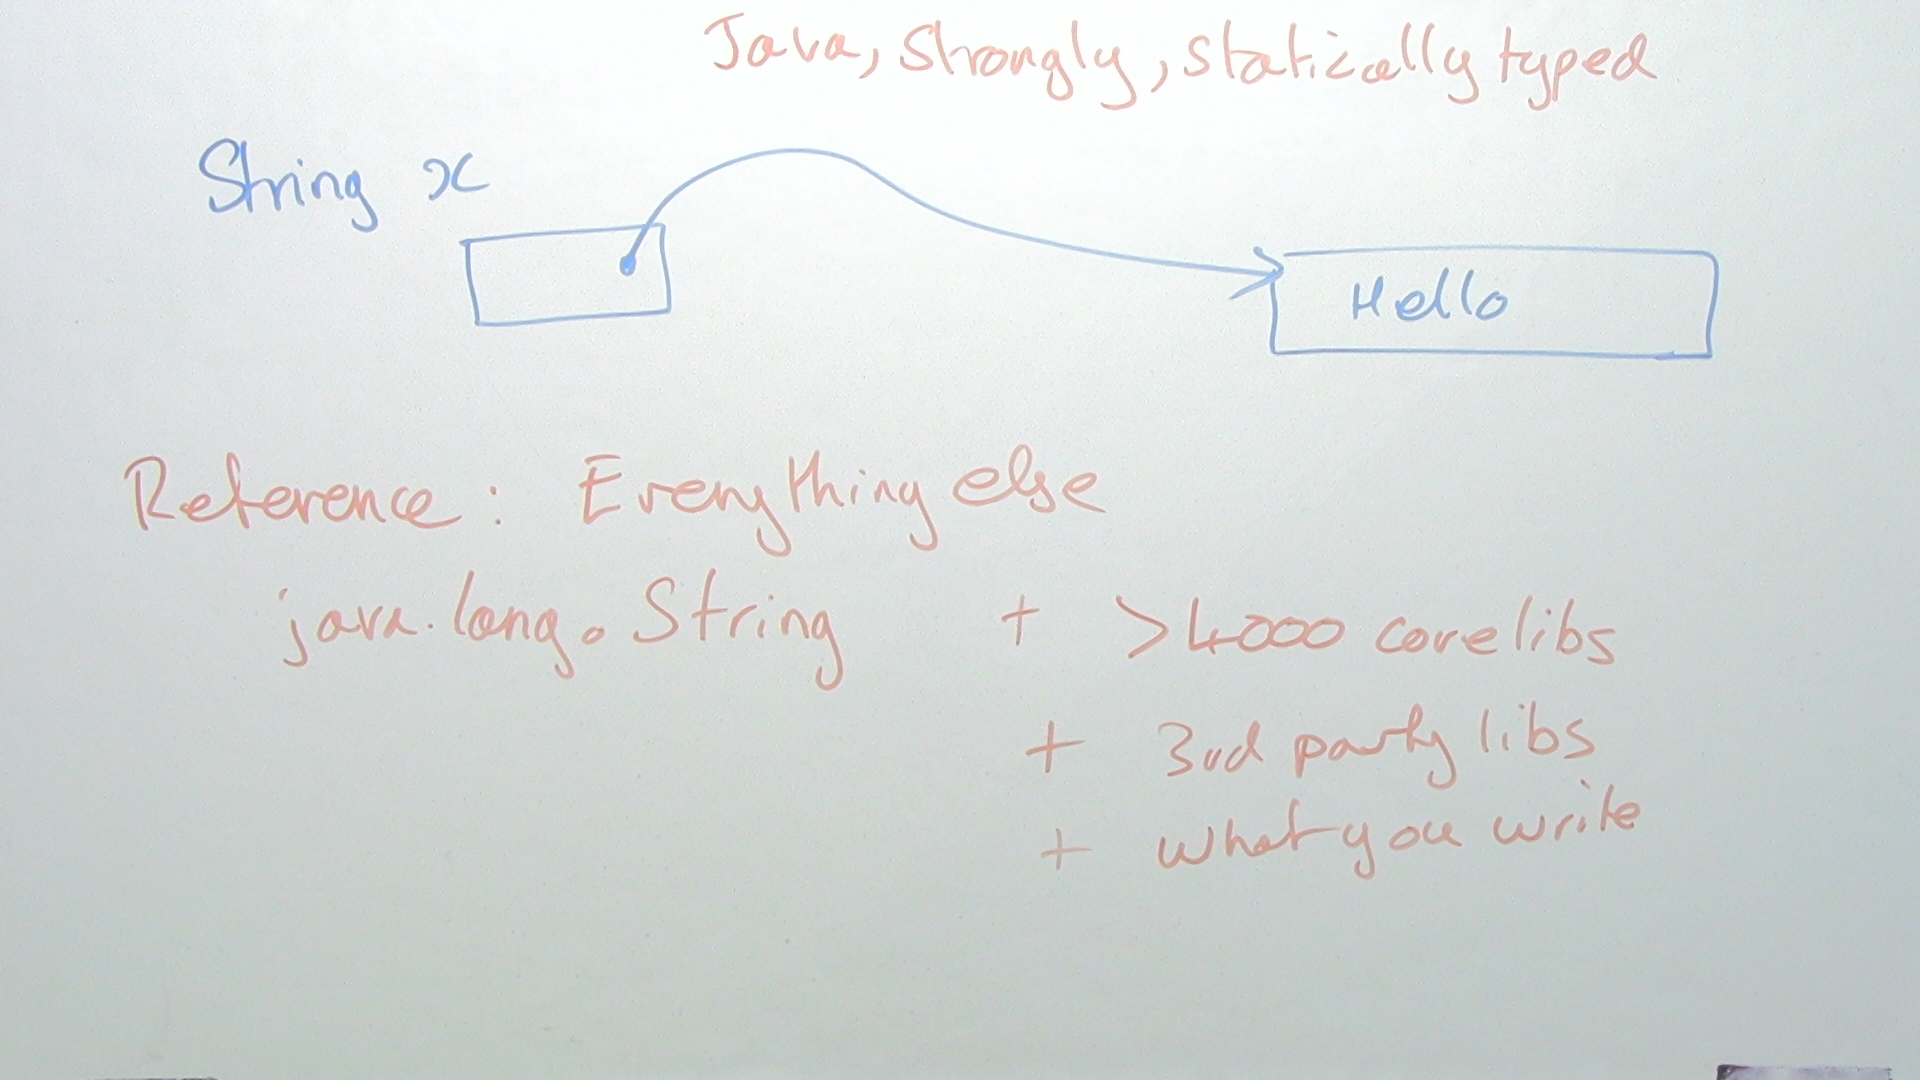 Java, Strongly, statically typed
String x
Hello
Reference: Everything else
java.lang.String + >4000 core libs
+ 3rd party libs
+ what you write